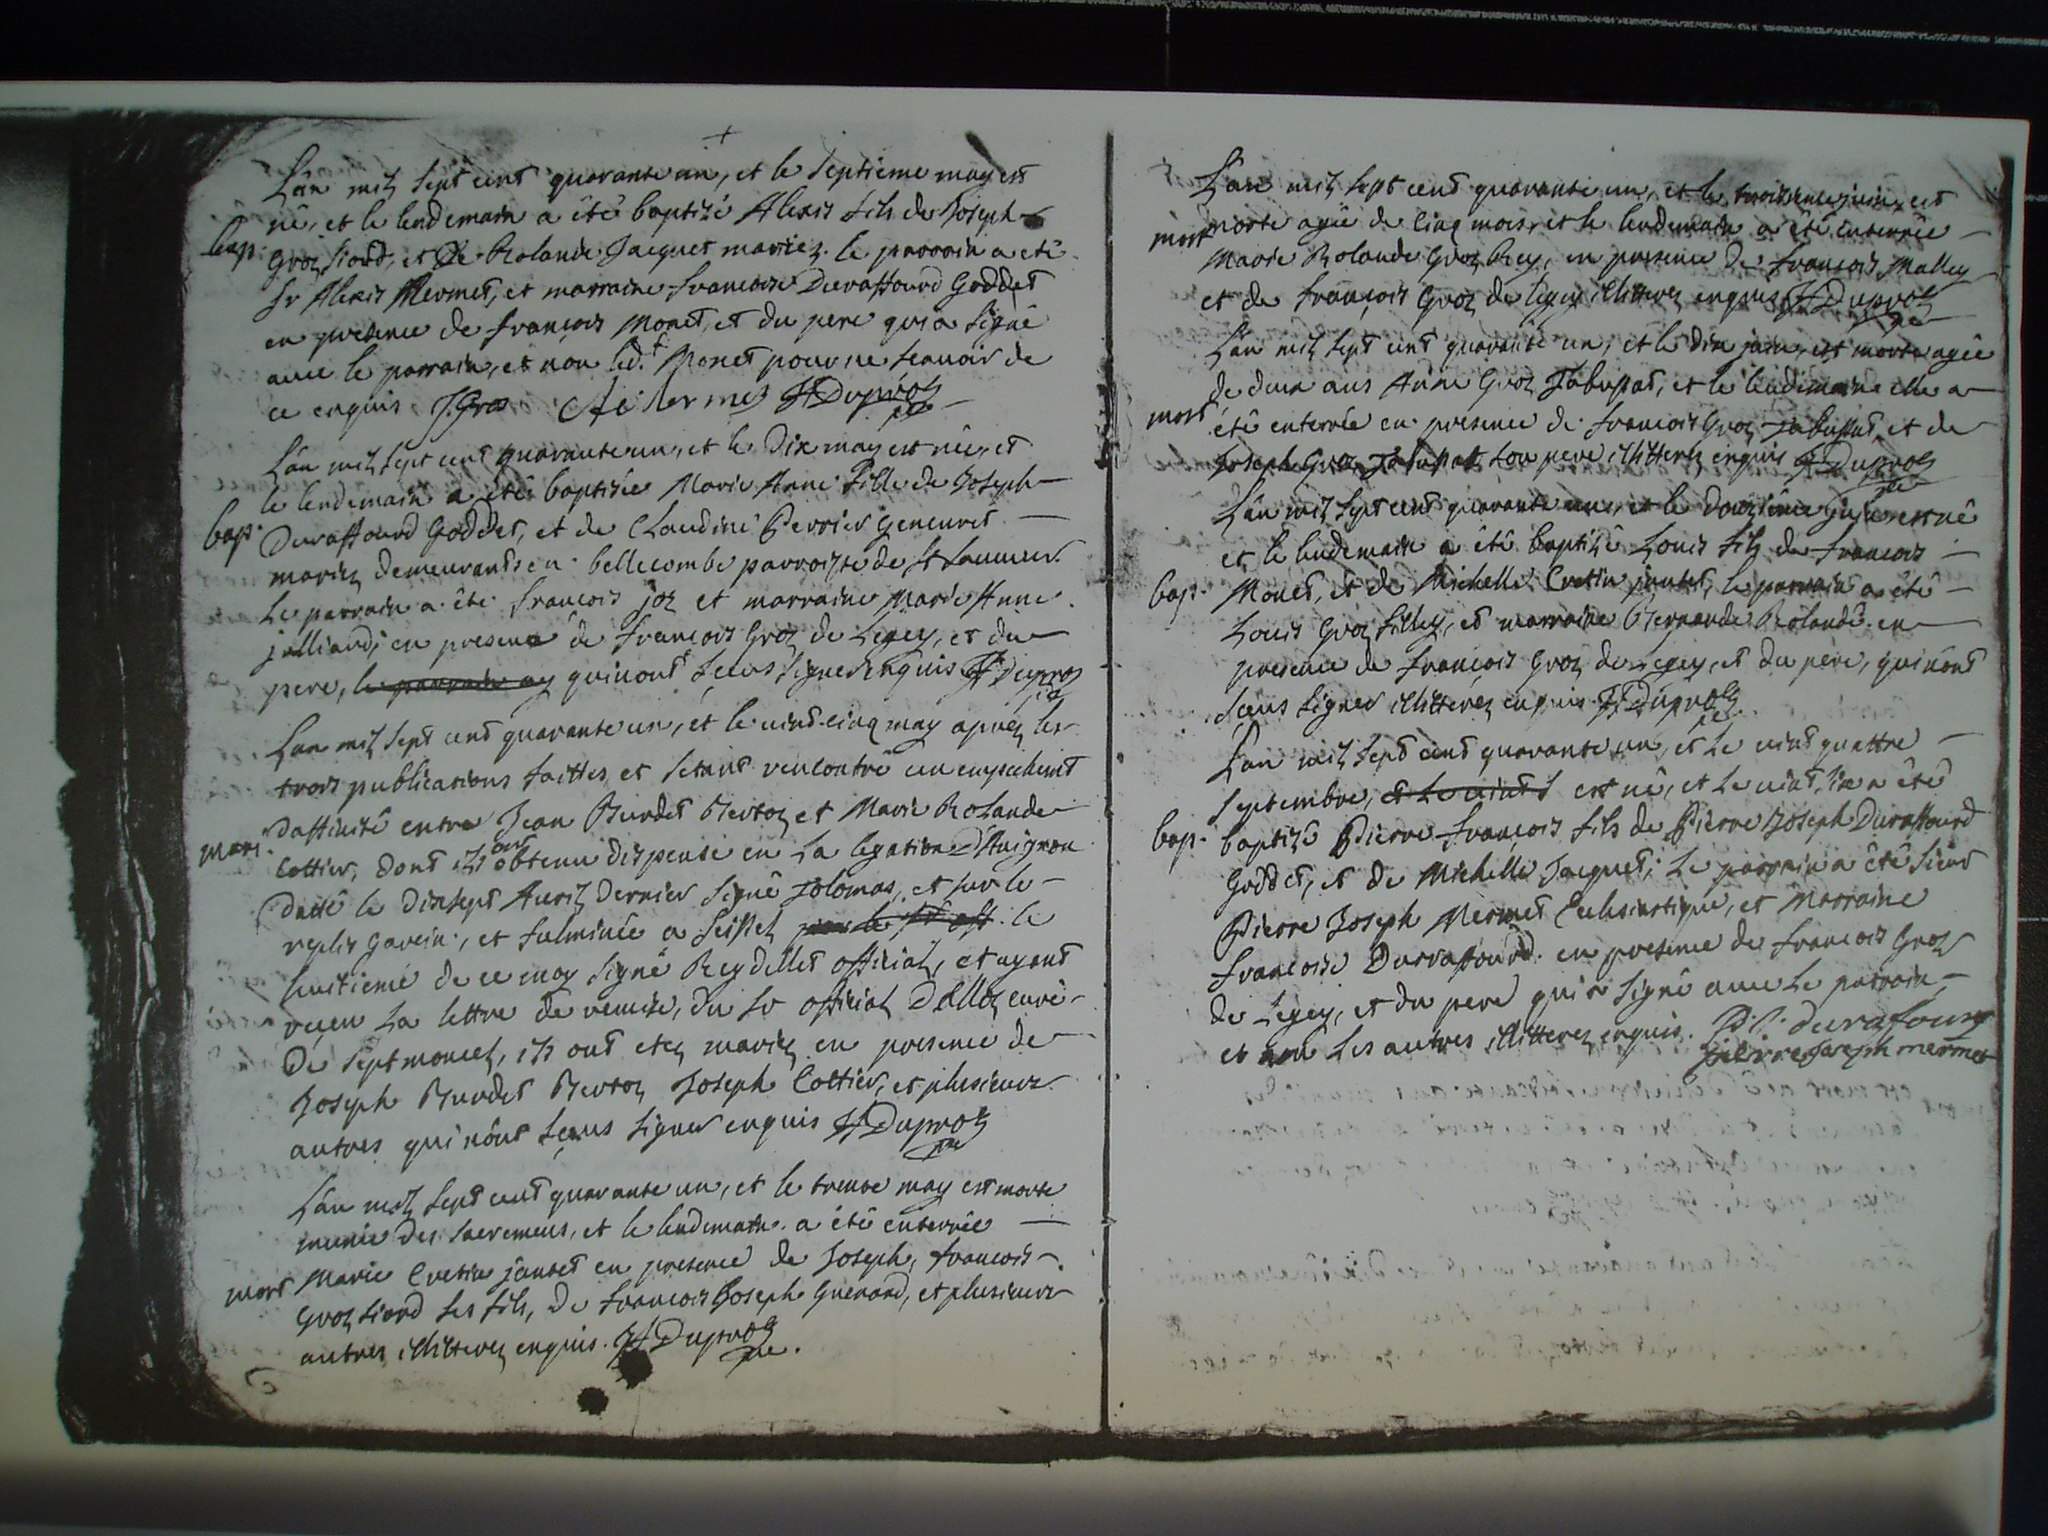 L'an mil sept cent quarante un, et le septieme may est
né, et le lendemain a été baptizé Alexis fils de Joseph
bap. Groz siard, et de Rolande Jacquet mariez. le parrain a eté
Sr Alexis Mermet, et marraine francoise Duraffourd Goddet
en presence de francois Monet, et du pere qui a signé
avec le parrain, et non led.t Monet pour ne scavoir de
ce enquis J. Gros A: Mermet Duproz
L'an mil sept cent quarante un, et le Dix may est née, et
le lendemain a été baptizée Marie Anne fille de Joseph
bap. Duraffourd Goddet, et de Claudine Perrier Geneuret
mariez demeurants en bellecombe parroisse de St Sauveur.
Le parrain a été francois joz et marraine Marie Anne
julliard, en presence de francois Groz de Legey, et du
pere, le parrain qui n'ont sceus signer enquis Duproz
L'an mil sept cent quarante un, et le vint-cinq may aprez les
trois publications faittes et s'etant rencontré un empechemt
mari. D'affinité entre Jean Burdet Bertoz et Marie Rolande
Cottier, dont ils ont obtenu dispense en La legation D'Avignon
datté le dixsept Avril dernier signé Jolomas, et sur le
replis Gavein, et fulminée a seissel le
huitieme de ce moy signé Reydellet official, et ayant
reçeu La lettre de remise, du Sr official curé
De septmoncel, ils ont etez mariez en presence de
Joseph Burdet Bertoz Joseph Cottier, et plusieurs
autres qui n'ont sçeus signer enquis Duproz
L'an mil sept cent quarante un, et le trente may est morte
munie des sacremens, et le lendemain a été enterrée
mort Marie Cretin jantet en presence de Joseph, francois
Groz siard ses fils, de francois Joseph Guenard, et plusieurs
autres illitterez enquis. Duproz
L'an mil sept cent quarante un, et le troisieme juin, est
mort morte agée de cinq mois, et le lendemain a été enterrée
Marie Rolande Groz Rey, en presence de francois Malley
et de françois Groz de legey illitterez enquis Duproz
L'an mil sept cent quarante un, et le dix juin, est morte agée
de deux ans Anne Groz Tabussat, et le lendemain elle a
mort été enterrée en presence de francois Groz Tabussat, et de
Joseph Groz Tabussat son pere illitterez enquis Duproz
L'an mil sept cent quarante un, et le douzieme juin est né
et le lendemain a été baptizé Louis fils de francois
bap. Monet, et de Michelle Cretin jantet, le parrain a été
Louis Groz filley, et marraine Bernarde Rolande en
presence de francois Groz de Legey, et du pere, qui n'ont
sceus signer illitterez enquis Duproz
L'an mil sept cent quarante un, et Le vint quattre
septembre, et Le vint est né, et Le vint six a été
bap. baptizé Pierre françois fils de Pierre Joseph Duraffourd
Goddet, et de Michelle Jacquet; Le parrain a été Sieur
Pierre Joseph Mermet Ecclesiastique, et Marraine
francoise Durraffourd. en presence de francois Groz
de Legey, et du pere qui a signé avec Le parrain
et non Les autres illitterez enquis. P.J. durafourg
pierre joseph mermet